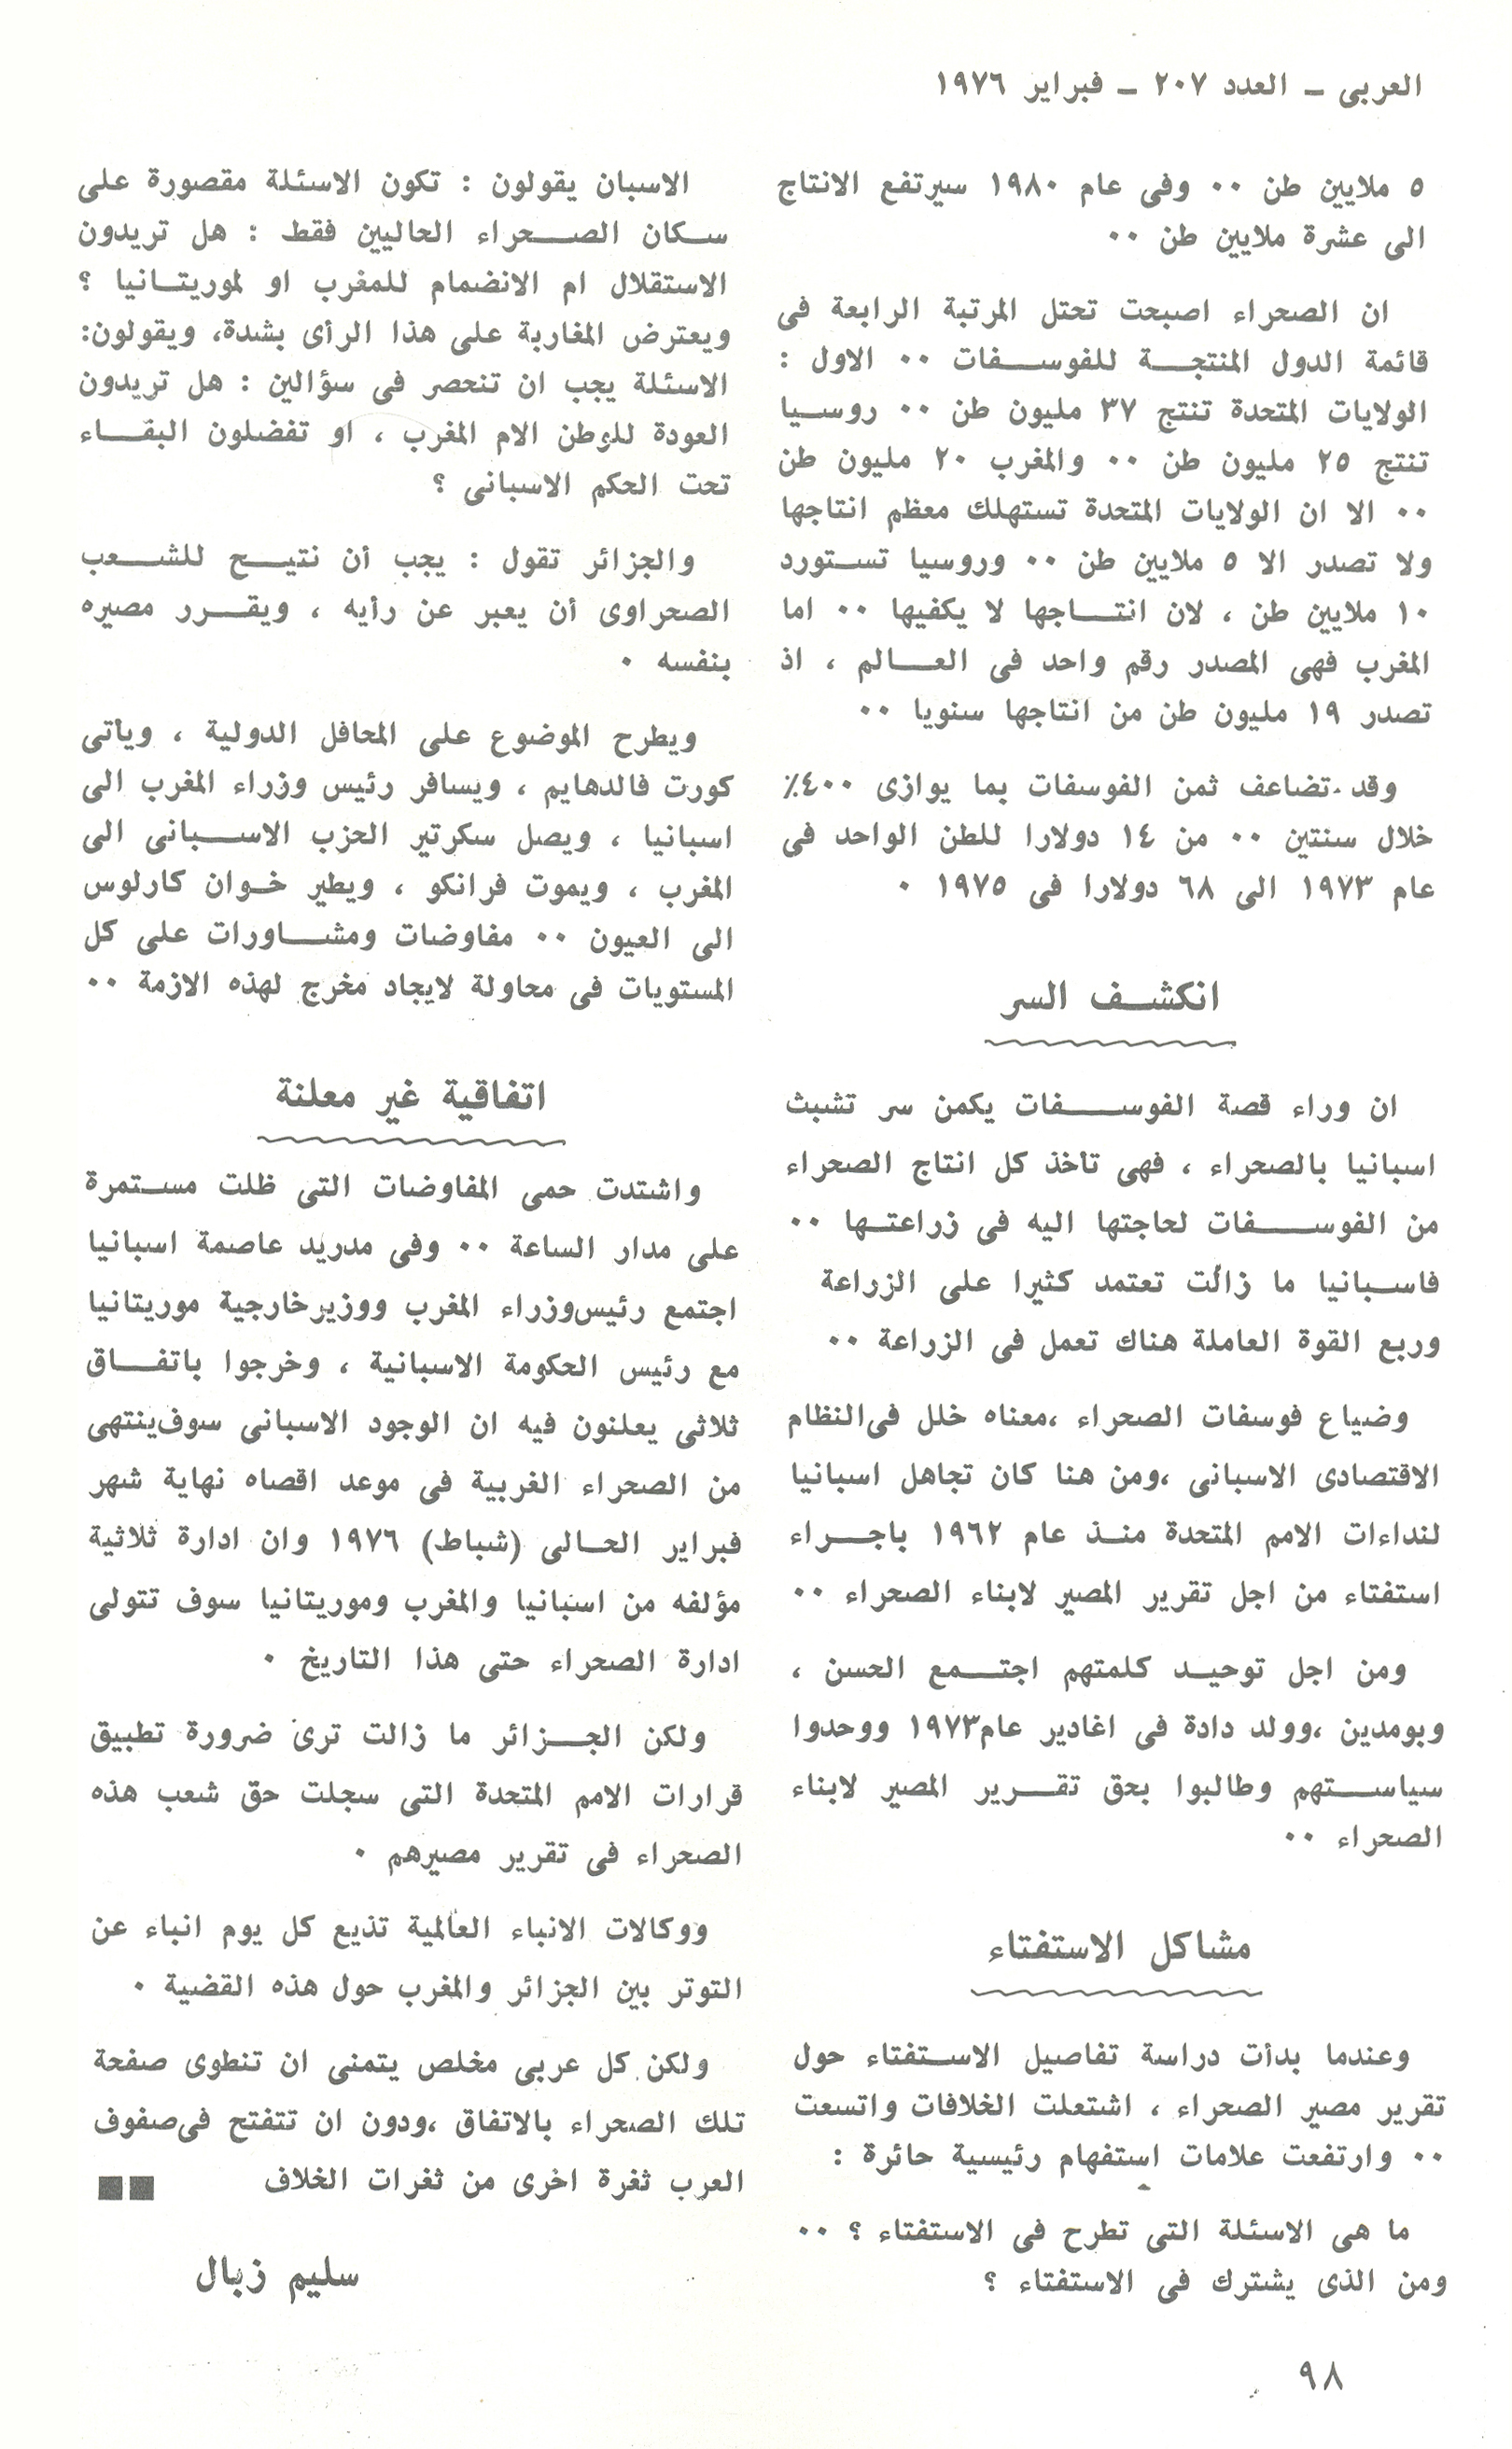 العربى – العدد ٢٠٧ – فبراير ١٩٧٦
٥ ملايين طن ٠٠ وفى عام ١٩٨٠ سيرتفع الانتاج
الى عشرة ملايين طن ٠٠
ان الصحراء اصبحت تحتل المرتبة الرابعة فى
قائمة الدول المنتجة للفوسفات ٠٠ الاول :
الولايات المتحدة تنتج ٣٧ مليون طن ٠٠ روسيا
تنتج ٢٥ مليون طن ٠٠ والمغرب ٢٠ مليون طن
٠٠ الا ان الولايات المتحدة تستهلك معظم انتاجها
ولا تصدر الا ٥ ملايين طن ٠٠ وروسيا تستورد
١٠ ملايين طن ، لان انتاجها لا يكفيها ٠٠ اما
المغرب فهى المصدر رقم واحد فى العالم ، اذ
تصدر ١٩ مليون طن من انتاجها سنويا ٠٠
وقد تضاعف ثمن الفوسفات بما يوازى ٤٠٠٪
خلال سنتين ٠٠ من ١٤ دولارا للطن الواحد فى
عام ١٩٧٣ الى ٦٨ دولارا فى ١٩٧٥ ٠
انكشف السر
ان وراء قصة الفوسفات يكمن سر تشبث
اسبانيا بالصحراء ، فهى تاخذ كل انتاج الصحراء
من الفوسفات لحاجتها اليه فى زراعتها ٠٠
فاسبانيا ما زالت تعتمد كثيرا على الزراعة
وربع القوة العاملة هناك تعمل فى الزراعة ٠٠
وضياع فوسفات الصحراء ،معناه خلل فى النظام
الاقتصادى الاسبانى ،ومن هنا كان تجاهل اسبانيا
لنداءات الامم المتحدة منذ عام ١٩٦٢ باجراء
استفتاء من اجل تقرير المصير لابناء الصحراء ٠٠
ومن اجل توحيد كلمتهم اجتمع الحسن ،
وبومدين ،وولد دادة فى اغادير عام ١٩٧٣ ووحدوا
سياستهم وطالبوا بحق تقرير المصير لابناء
الصحراء ٠٠
مشاكل الاستفتاء
وعندما بدأت دراسة تفاصيل الاستفتاء حول
تقرير مصير الصحراء ، اشتعلت الخلافات واتسعت
٠٠ وارتفعت علامات استفهام رئيسية حائرة :
ما هى الاسئلة التى تطرح فى الاستفتاء ؟ ٠٠
ومن الذى يشترك فى الاستفتاء ؟
الاسبان يقولون : تكون الاسئلة مقصورة على
سكان الصحراء الحاليين فقط : هل تريدون
الاستقلال ام الانضمام للمغرب او لموريتانيا ؟
ويعترض المغاربة على هذا الرأى بشدة، ويقولون:
الاسئلة يجب ان تنحصر فى سؤالين : هل تريدون
العودة للوطن الام المغرب ، او تفضلون البقاء
تحت الحكم الاسبانى ؟
والجزائر تقول : يجب أن نتيح للشعب
الصحراوى أن يعبر عن رأيه ، ويقرر مصيره
بنفسه ٠
ويطرح الموضوع على المحافل الدولية ، وياتى
كورت فالدهايم ، ويسافر رئيس وزراء المغرب الى
اسبانيا ، ويصل سكرتير الحزب الاسبانى الى
المغرب ، ويموت فرانكو ، ويطير خوان كارلوس
الى العيون ٠٠ مفاوضات ومشاورات على كل
المستويات فى محاولة لايجاد مخرج لهذه الازمة ٠٠
اتفاقية غير معلنة
واشتدت حمى المفاوضات التى ظلت مستمرة
على مدار الساعة ٠٠ وفى مدريد عاصمة اسبانيا
اجتمع رئيس وزراء المغرب ووزير خارجية موريتانيا
مع رئيس الحكومة الاسبانية ، وخرجوا باتفاق
ثلاثى يعلنون فيه ان الوجود الاسبانى سوف ينتهى
من الصحراء الغربية فى موعد اقصاه نهاية شهر
فبراير الحالى (شباط) ١٩٧٦ وان ادارة ثلاثية
مؤلفه من اسبانيا والمغرب وموريتانيا سوف تتولى
ادارة الصحراء حتى هذا التاريخ ٠
ولكن الجزائر ما زالت ترى ضرورة تطبيق
قرارات الامم المتحدة التى سجلت حق شعب هذه
الصحراء فى تقرير مصيرهم ٠
ووكالات الانباء العالمية تذيع كل يوم انباء عن
التوتر بين الجزائر والمغرب حول هذه القضية ٠
ولكن كل عربى مخلص يتمنى ان تنطوى صفحة
تلك الصحراء بالاتفاق ،ودون ان تتفتح فى صفوف
العرب ثغرة اخرى من ثغرات الخلاف
سليم زبال
٩٨